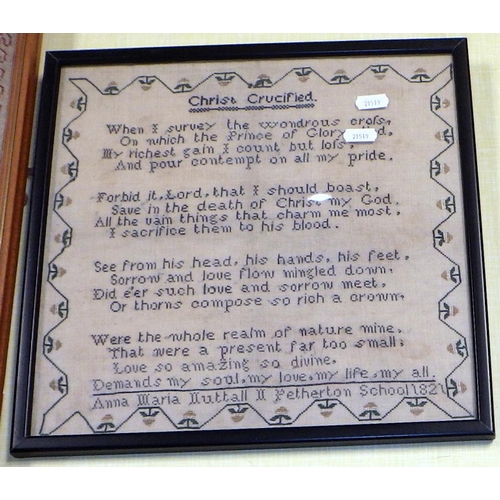 Christ Crucified.
21519
When I survey the wondrous cross,
21519
On which the Prince of Glory d,
My richest gain I count but loss,
And pour contempt on all my pride.
Forbid it, Lord, that I should boast,
Save in the death of Christ, my God.
All the vain things that charm me most,
I sacrifice them to his blood.
See from his head, his hands, his feet,
Sorrow and love flow mingled down,
Did e'er such love and sorrow meet,
Or thorns compose so rich a crown,
Were the whole realm of nature mine,
That were a present far too small;
Love so amazing so divine,
Demands my soul, my love, my life, my all.
Anna Maria Nuttall N Petherton School 1821